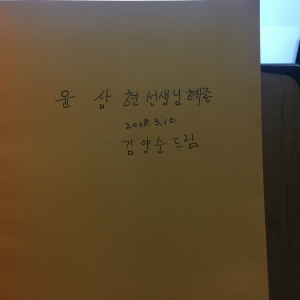 윤 상 현 선생님 혜존
2008.3.10
김양순 드림